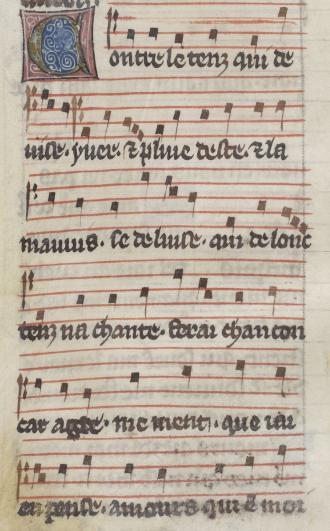 Contre le tenz qui de
uise. yuer. ⁊ pluie deste. ⁊ la
mauuis. se deluise. qui de lonc
tenz na chante. ferai chancon
car agre. me uient. que iai
enprise. amours qui mor